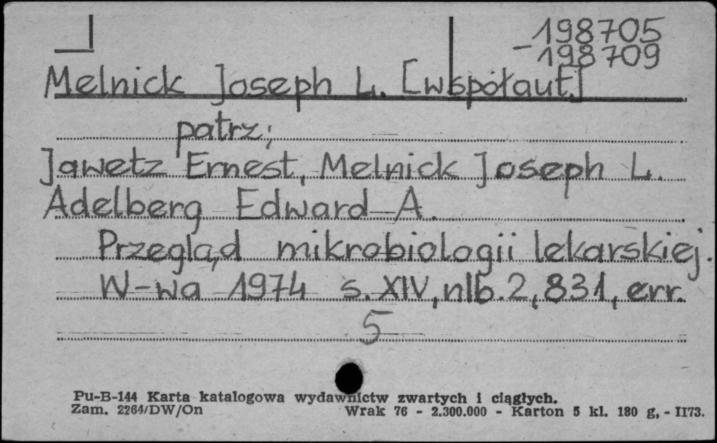 198705
-198709
Melnick Joseph L. [współaut.]
patrz:
Jawetz Ernest, Melnick Joseph L.
Adelberg Edward A.
Przegląd mikrobiologii lekarskiej.
W-wa 1974 s. XIV, nlb. 2, 831, err.
5
Pu-B-144 Karta katalogowa wydawnictw zwartych i ciągłych.
Zam. 2264/DW/On Wrak 76 - 2.300.000 - Karton 5 kl. 180 g. - II73.